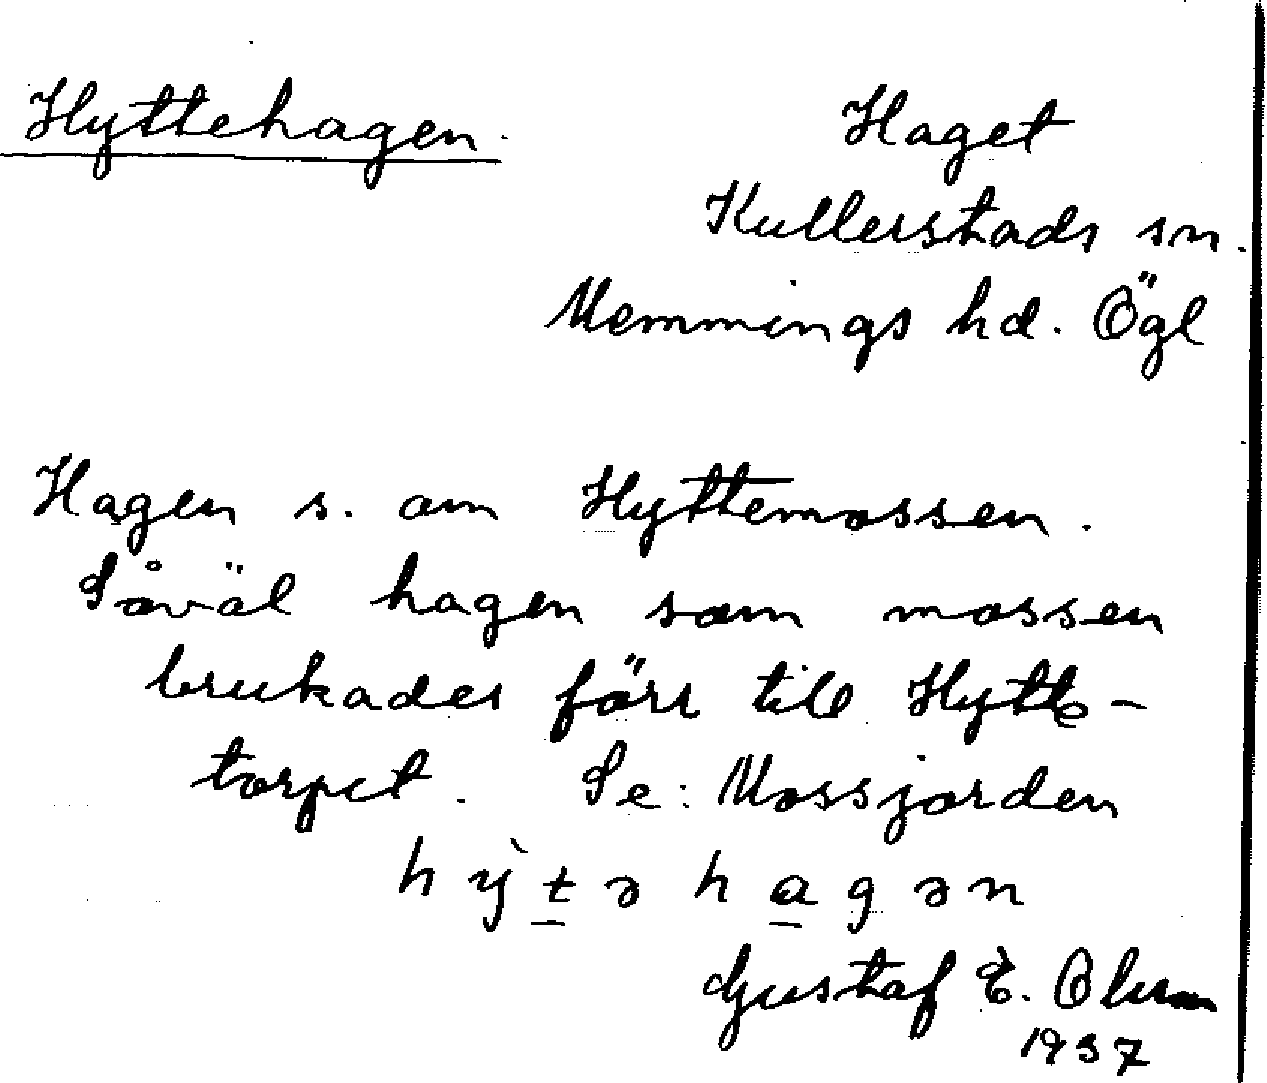 Hyttehagen.
Haget
Kullerstads sn.
Memmings hd. Ögl
Hagen s. om Hyttemossen.
Såväl hagen som mossen
brukades förr till Hytte-
torpet. Se: Mossjorden
hỳtəhagən
Gustaf E. Olsson
1937